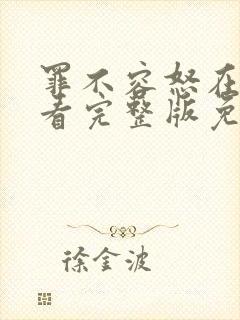 罪不容怒在
看完整版免
徐金波